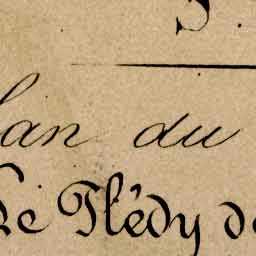 lan du
Le Plédy de